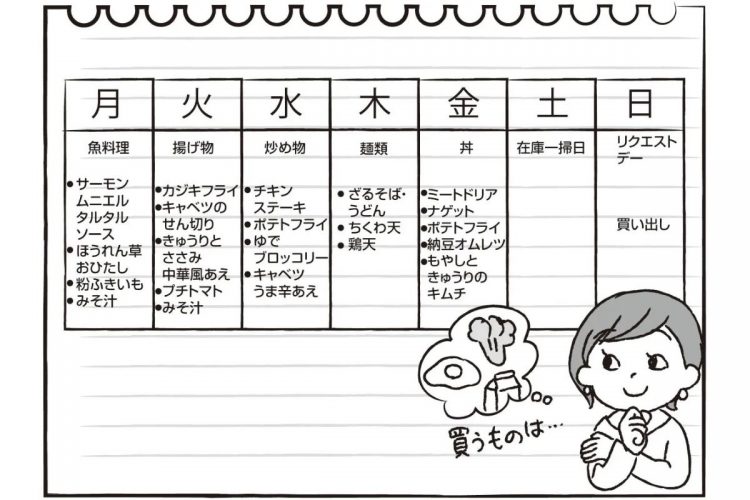 月 火 水 木 金 土 日
魚料理
●サーモン
ムニエル
タルタル
ソース
●ほうれん草
おひたし
●粉ふきいも
●みそ汁
揚げ物
●カジキフライ
●キャベツの
せん切り
●きゅうりと
ささみ
中華風あえ
●プチトマト
●みそ汁
炒め物
●チキン
ステーキ
●ポテトフライ
●ゆで
ブロッコリー
●キャベツ
うま辛あえ
麺類
●ざるそば・
うどん
●ちくわ天
●鶏天
丼
●ミートドリア
●ナゲット
●ポテトフライ
●納豆オムレツ
●もやしと
きゅうりの
キムチ
在庫一掃日
リクエスト
デー
買い出し
買うものは…